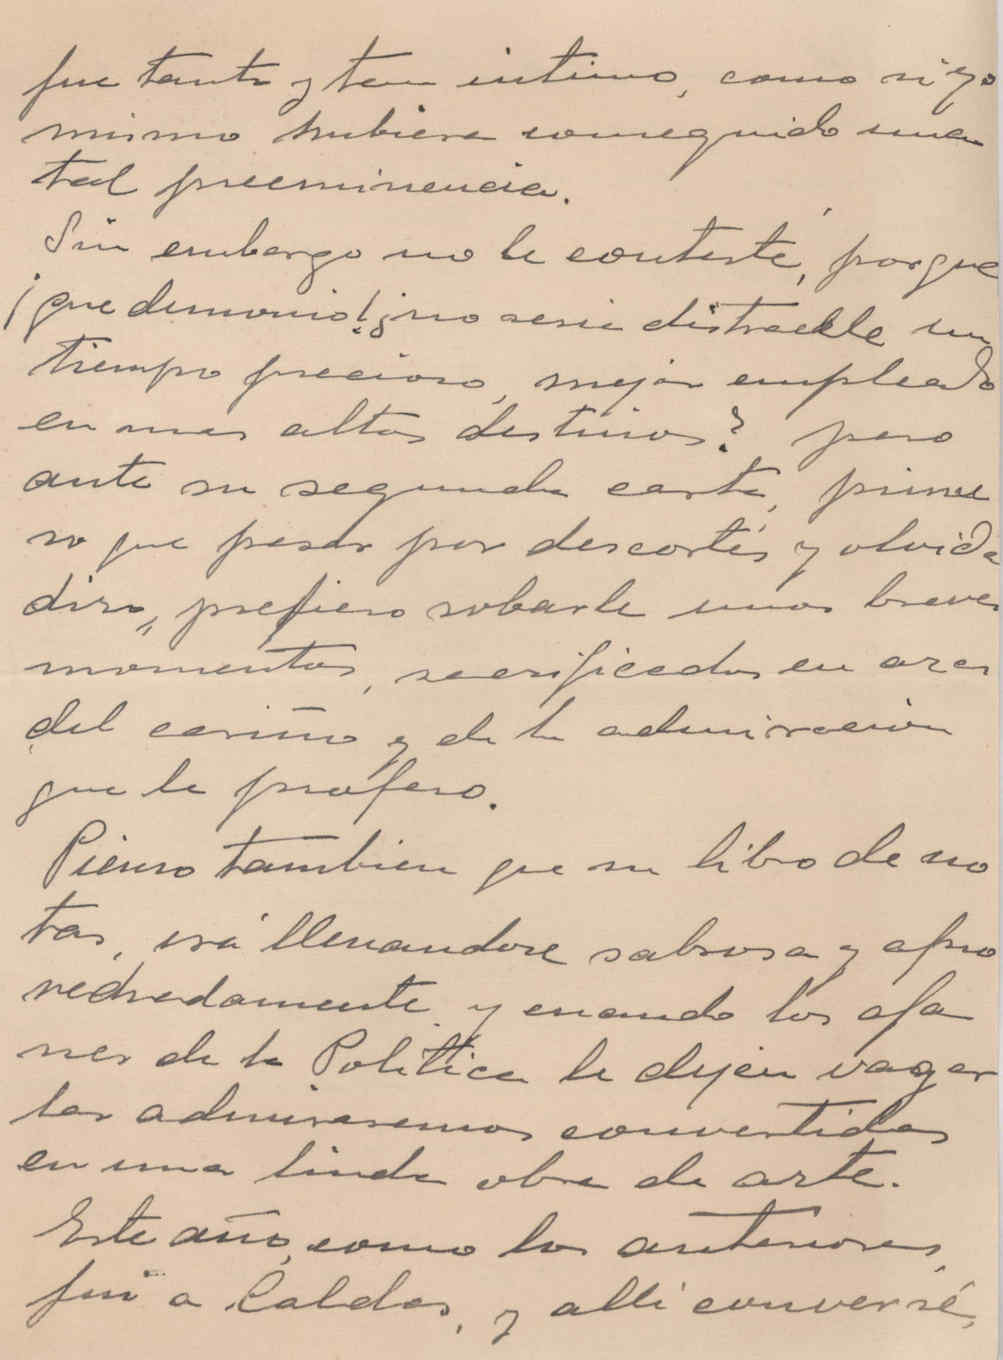 fue tanto y tan intimo, como si yo
mismo hubiera conseguido una
tal preeminencia.
Sin embargo no le contesté, porque
¡que demonio! ¿no seria distraelle un
tiempo precioso, mejor empleado
en mas altos destinos? pero
ante su segunda carta, prime
ro que pasar por descortés y olvida
dizo, prefiero robarle unos breves
momentos, sacrificados en aras
del cariño y de la admiración
que le profeso.
Pienso tambien que su libro de no
tas, irá llenandose sabrosa y apro
vechadamente y cuando los afa
nes de la Politica le dejen vagar
las admiraremos convertidas
en una linda obra de arte.
Este año, como los anteriores,
fui a Caldas, y alli conversé,